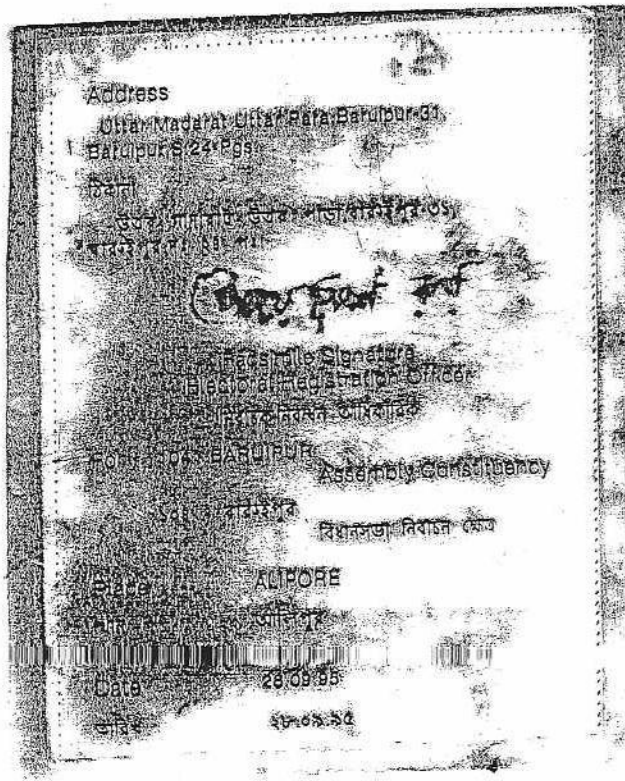 Address
Uttar Madarat Uttar Para Baruipur-31
Baruipur S 24-Pgs
ঠিকানা
উত্তর মাদারাট উত্তর পাড়া বারুইপুর-৩১,
বারুইপুর দঃ ২৪ পঃ
Facsimile Signature
Electoral Registration Officer
নির্বাচক নিবন্ধন আধিকারিক
For BARUIPUR
Assembly Constituency
বারুইপুর
বিধানসভা নির্বাচন ক্ষেত্র
Place ALIPORE
আলিপুর
Date 28.09.95
তারিখ ২৮.০৯.৯৫